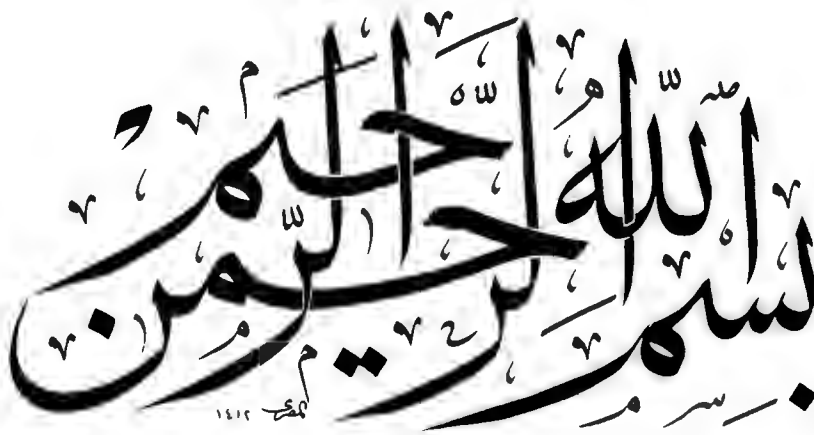 بسم الله الرحمن الرحيم
١٤١٢